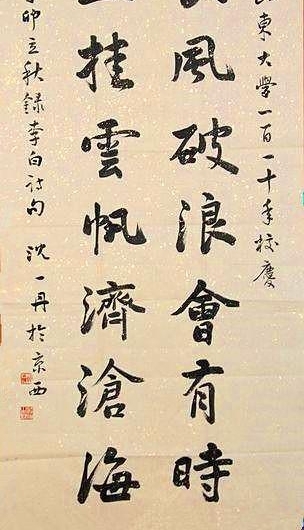 東大學一百一十年校慶
風破浪會有時
挂雲帆濟滄海
卯立秋錄李白詩句 沈一丹於京西